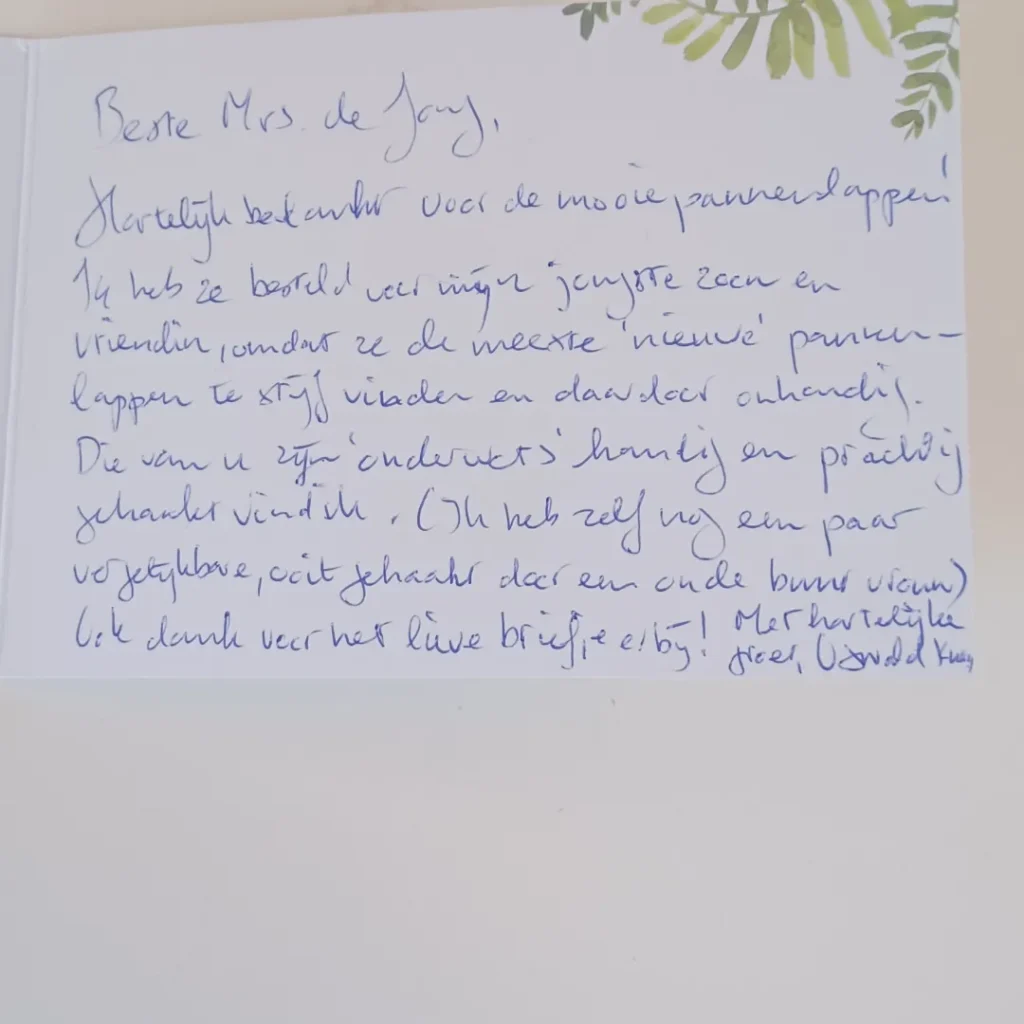 Beste Mrs. de Jong,
Hartelijk bedankt voor de mooie pannenlappen!
Ik heb ze besteld voor mijn jongste zoon en
vriendin, omdat ze de meeste 'nieuwe' pannen-
lappen te stijf vinden en daardoor onhandig.
Die van u zijn 'ouderwets' handig en prachtig
gehaakt vind ik. (Ik heb zelf nog een paar
vergelijkbare, ooit gehaakt door een oude buurvrouw)
Ook dank voor het lieve briefje erbij! Met hartelijke
groet,